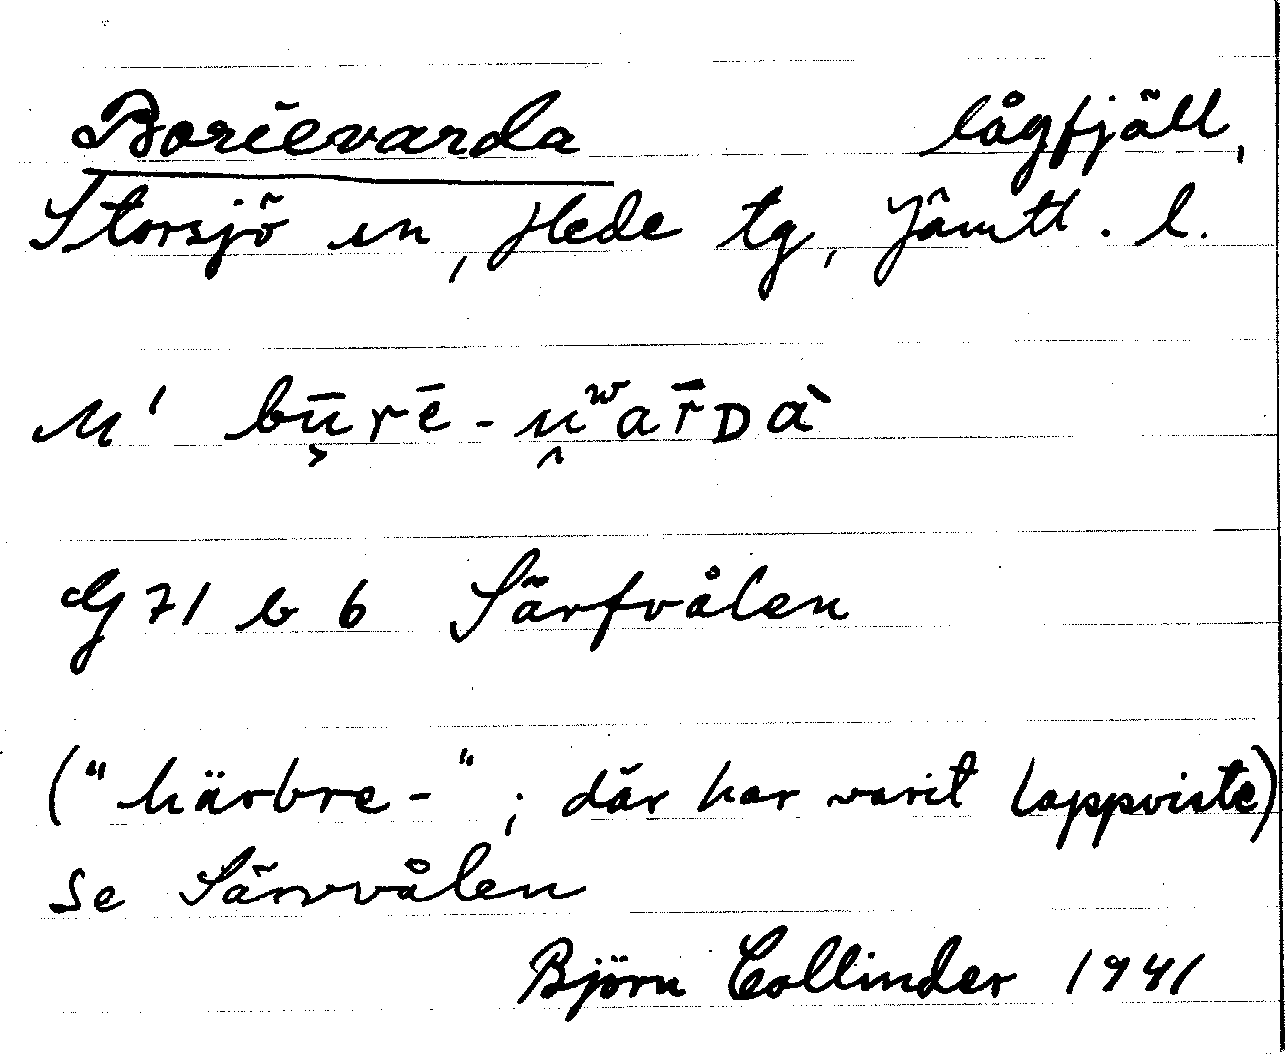 Boriévarda lågfjäll,
Storsjö sn, Hede tg, Jämtl. l.
M' bu̬̅rē-u̯ʷar̄ᴅà
G 71 b 6 Särfvålen
("härbre-"; där har varit lappviste)
se Särvvålen
Björn Collinder 1941